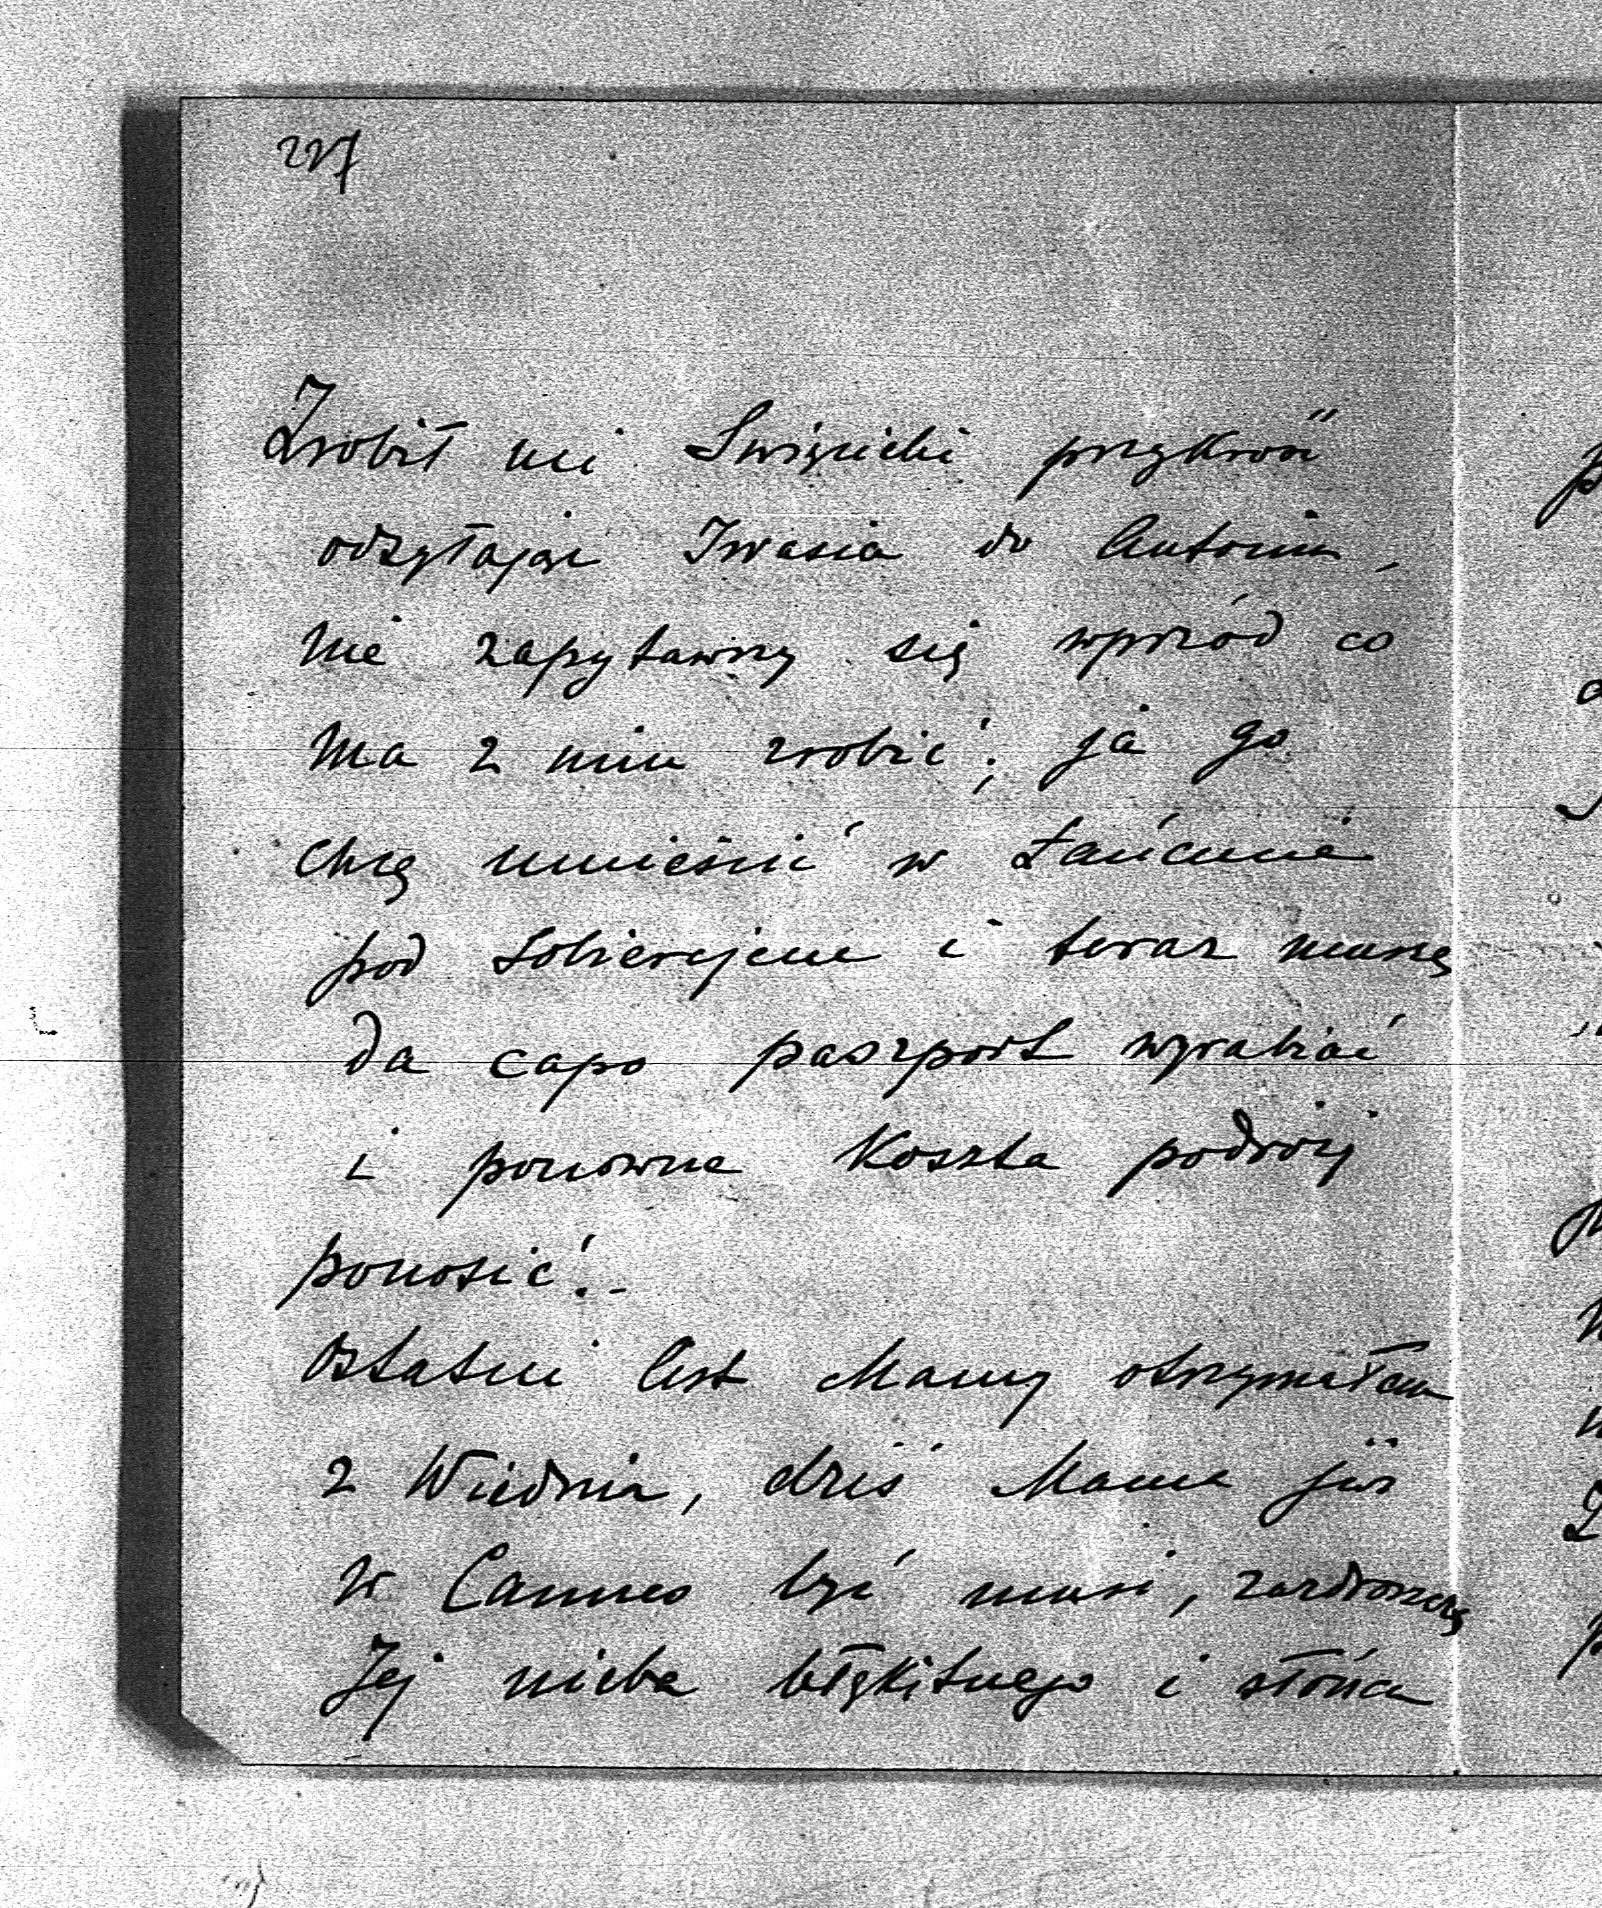 227
Zrobił mi Święcicki przykrość
odsyłając Iwasia do Antonin,
nie zapytawszy się wprzód co
ma z nim zrobić; ja go
chcę umieścić w Łańcucie
pod Sobierajem i teraz muszę
da capo paszport wyrabiać
i ponowne koszta podróży
ponosić!-
Ostatni list Mamy otrzymałam
z Wiednia, dziś Mama już
w Cannes być musi, zazdroszczę
Jej nieba błękitnego i słońca